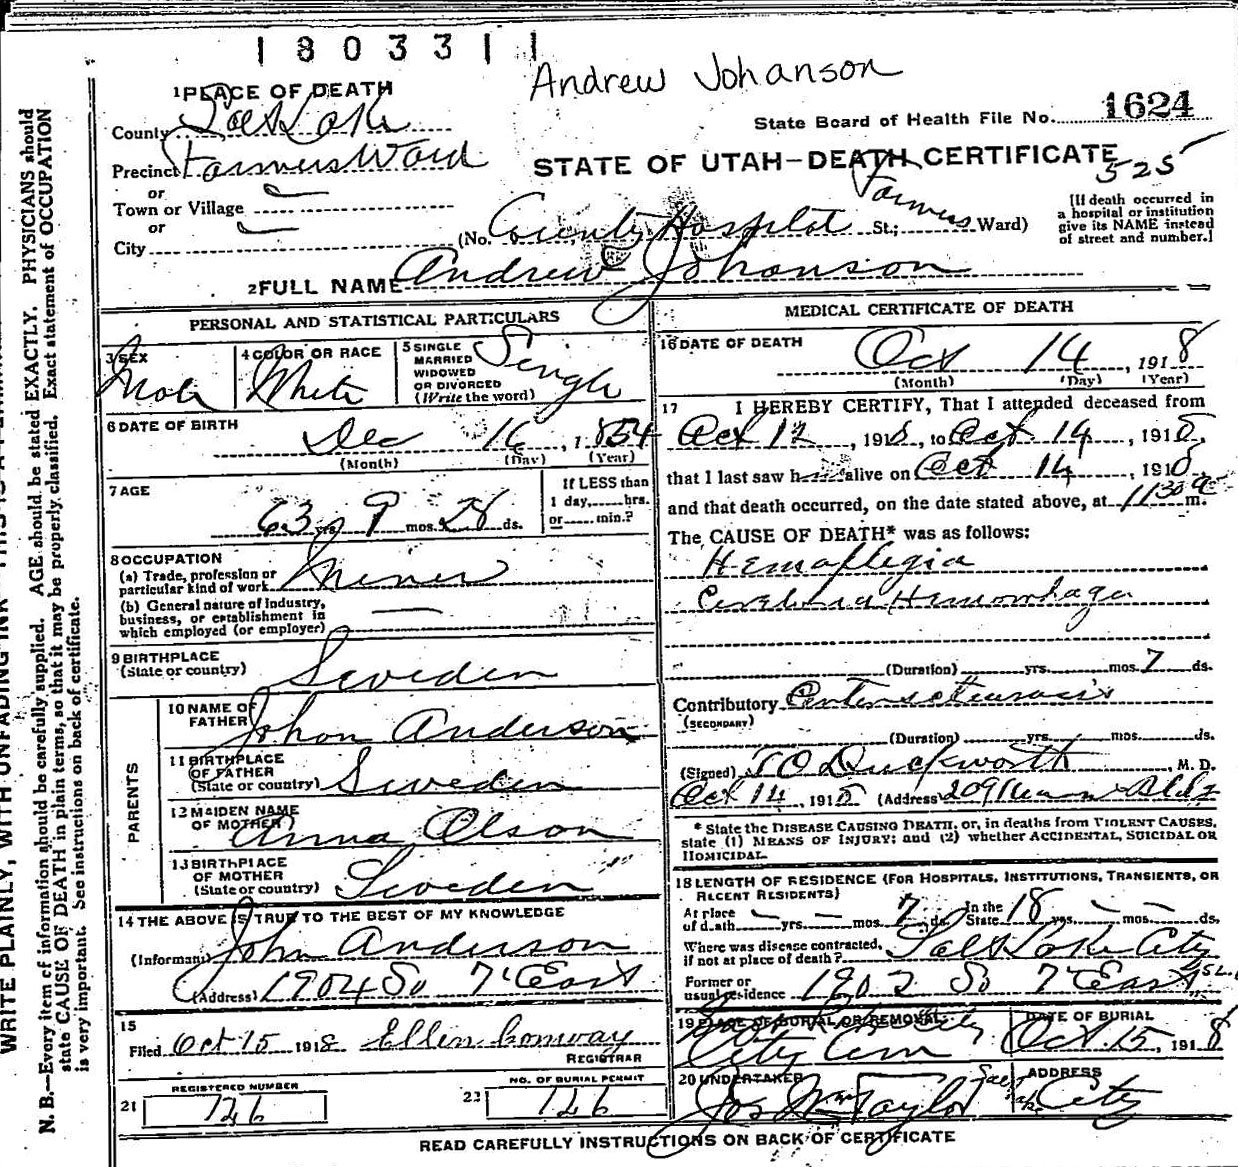 1803311
Andrew Johanson
1 PLACE OF DEATH
County Salt Lake
State Board of Health File No. 1624
Precinct Farmers Ward
STATE OF UTAH—DEATH CERTIFICATE
525
or
Town or Village
or
City
(No. County Hospital St.; Farmers Ward)
[If death occurred in
a hospital or institution
give its NAME instead
of street and number.]
2 FULL NAME Andrew Johanson
PERSONAL AND STATISTICAL PARTICULARS
3 SEX
Male
4 COLOR OR RACE
White
5 SINGLE
MARRIED
WIDOWED
OR DIVORCED
(Write the word)
Single
6 DATE OF BIRTH
Dec 16, 1854
(Month) (Day) (Year)
7 AGE
63 yrs. 9 mos. 28 ds.
If LESS than
1 day, hrs.
or min.?
8 OCCUPATION
(a) Trade, profession or
particular kind of work Miner
(b) General nature of Industry,
business, or establishment in
which employed (or employer)
9 BIRTHPLACE
(State or country) Sweden
PARENTS
10 NAME OF
FATHER Johan Anderson
11 BIRTHPLACE
OF FATHER
(State or country) Sweden
12 MAIDEN NAME
OF MOTHER Anna Olson
13 BIRTHPLACE
OF MOTHER
(State or country) Sweden
14 THE ABOVE IS TRUE TO THE BEST OF MY KNOWLEDGE
(Informant) John Anderson
(Address) 1904 So 7' East
15
Filed Oct 15 1918 Ellen Conway
REGISTRAR
REGISTERED NUMBER
21 726
NO. OF BURIAL PERMIT
22 726
MEDICAL CERTIFICATE OF DEATH
16 DATE OF DEATH
Oct 14, 1918
(Month) (Day) (Year)
17 I HEREBY CERTIFY, That I attended deceased from
Oct 12, 1918, to Oct 14, 1918,
that I last saw h alive on Oct 14, 1918,
and that death occurred, on the date stated above, at 11 30 a m.
The CAUSE OF DEATH* was as follows:
Hemaplegia
Hemorrhage
(Duration) yrs. mos. 7 ds.
Contributory
(SECONDARY)
(Duration) yrs. mos. ds.
(Signed) T O Duckworth, M. D.
Oct 14, 1918 (Address) Bldg
* State the DISEASE CAUSING DEATH, or, in deaths from VIOLENT CAUSES,
state (1) MEANS OF INJURY; and (2) whether ACCIDENTAL, SUICIDAL OR
HOMICIDAL.
18 LENGTH OF RESIDENCE (FOR HOSPITALS, INSTITUTIONS, TRANSIENTS, OR
RECENT RESIDENTS)
At place
of death yrs. mos. 7 ds. In the
State 18 yrs. mos. ds.
Where was disease contracted,
if not at place of death? Salt Lake City
Former or
usual residence 1902 So 7' East
19 PLACE OF BURIAL OR REMOVAL
City Cem
DATE OF BURIAL
Oct. 15, 1918
20 UNDERTAKER
Jos Wm Taylor
ADDRESS
Salt Lake City
READ CAREFULLY INSTRUCTIONS ON BACK OF CERTIFICATE
N. B.—Every item of information should be carefully supplied. AGE should be stated EXACTLY. PHYSICIANS should
state CAUSE OF DEATH in plain terms, so that it may be properly classified. Exact statement of OCCUPATION
is very important. See instructions on back of certificate.
WRITE PLAINLY, WITH UNFADING INK—THIS IS A